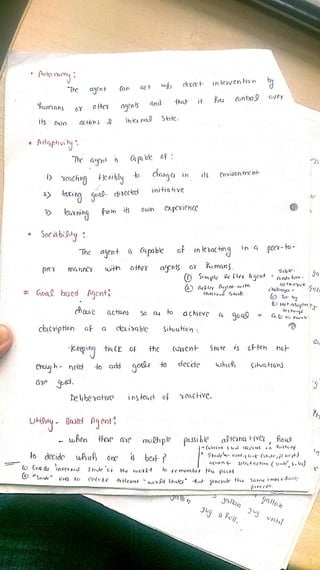 • Autonomy:
The agent can act w/o direct intervention by
humans or other agents and that it has control over
its own actions & internal state.
• Adaptivity:
The agent is capable of:
1) reacting flexibly to changes in its environment
2) taking goal-directed initiative
3) learning from its own experience
• Sociability:
The agent is capable of interacting in a peer-to-
peer manner with other agents or humans.
① Simple Reflex Agent - Table
② Reflex Agent with
internal state
Goal based Agent:
choose actions so as to achieve a goal =
description of a desirable situation.
-Keeping track of the current state is often not
enough - need to add goals to decide which situations
are good.
Deliberative instead of reactive.
Utility-Based Agent:
- when there are multiple possible alternatives, how
to decide which one is best?
① Encode "internal state" of the world to remember the past
② "State" used to encode different "world states" that generate the same immediate
percept
gallon gallon
Jug is full, Jug until